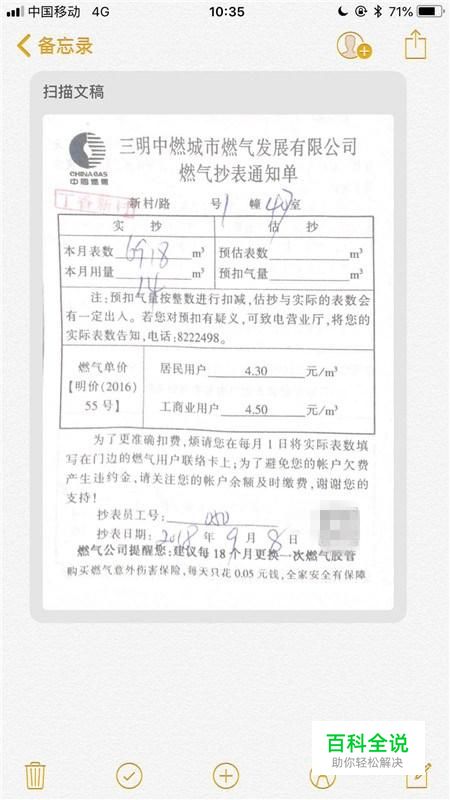 中国移动 4G 10:35 71%
备忘录
扫描文稿
三明中燃城市燃气发展有限公司
CHINAGAS
中国燃气
燃气抄表通知单
丁香新村 新村/路 号 1 幢 47 室
实 抄 估 抄
本月表数 6918 m³ 预估表数 m³
本月用量 14 m³ 预扣气量 m³
注:预扣气量按整数进行扣减,估抄与实际的表数会
有一定出入。若您对预扣有疑义,可致电营业厅,将您的
实际表数告知,电话:8222498。
燃气单价 居民用户 4.30 元/m³
【明价(2016)
55号】 工商业用户 4.50 元/m³
为了更准确扣费,烦请您在每月1日将实际表数填
写在门边的燃气用户联络卡上;为了避免您的帐户欠费
产生违约金,请关注您的帐户余额及时缴费,谢谢您的
支持!
抄表员工号: 050
抄表日期: 2018 年 9 月 8 日
燃气公司提醒您:建议每18个月更换一次燃气胶管
购买燃气意外伤害保险,每天只花0.05元钱,全家安全有保障
百科全说
助你轻松解决